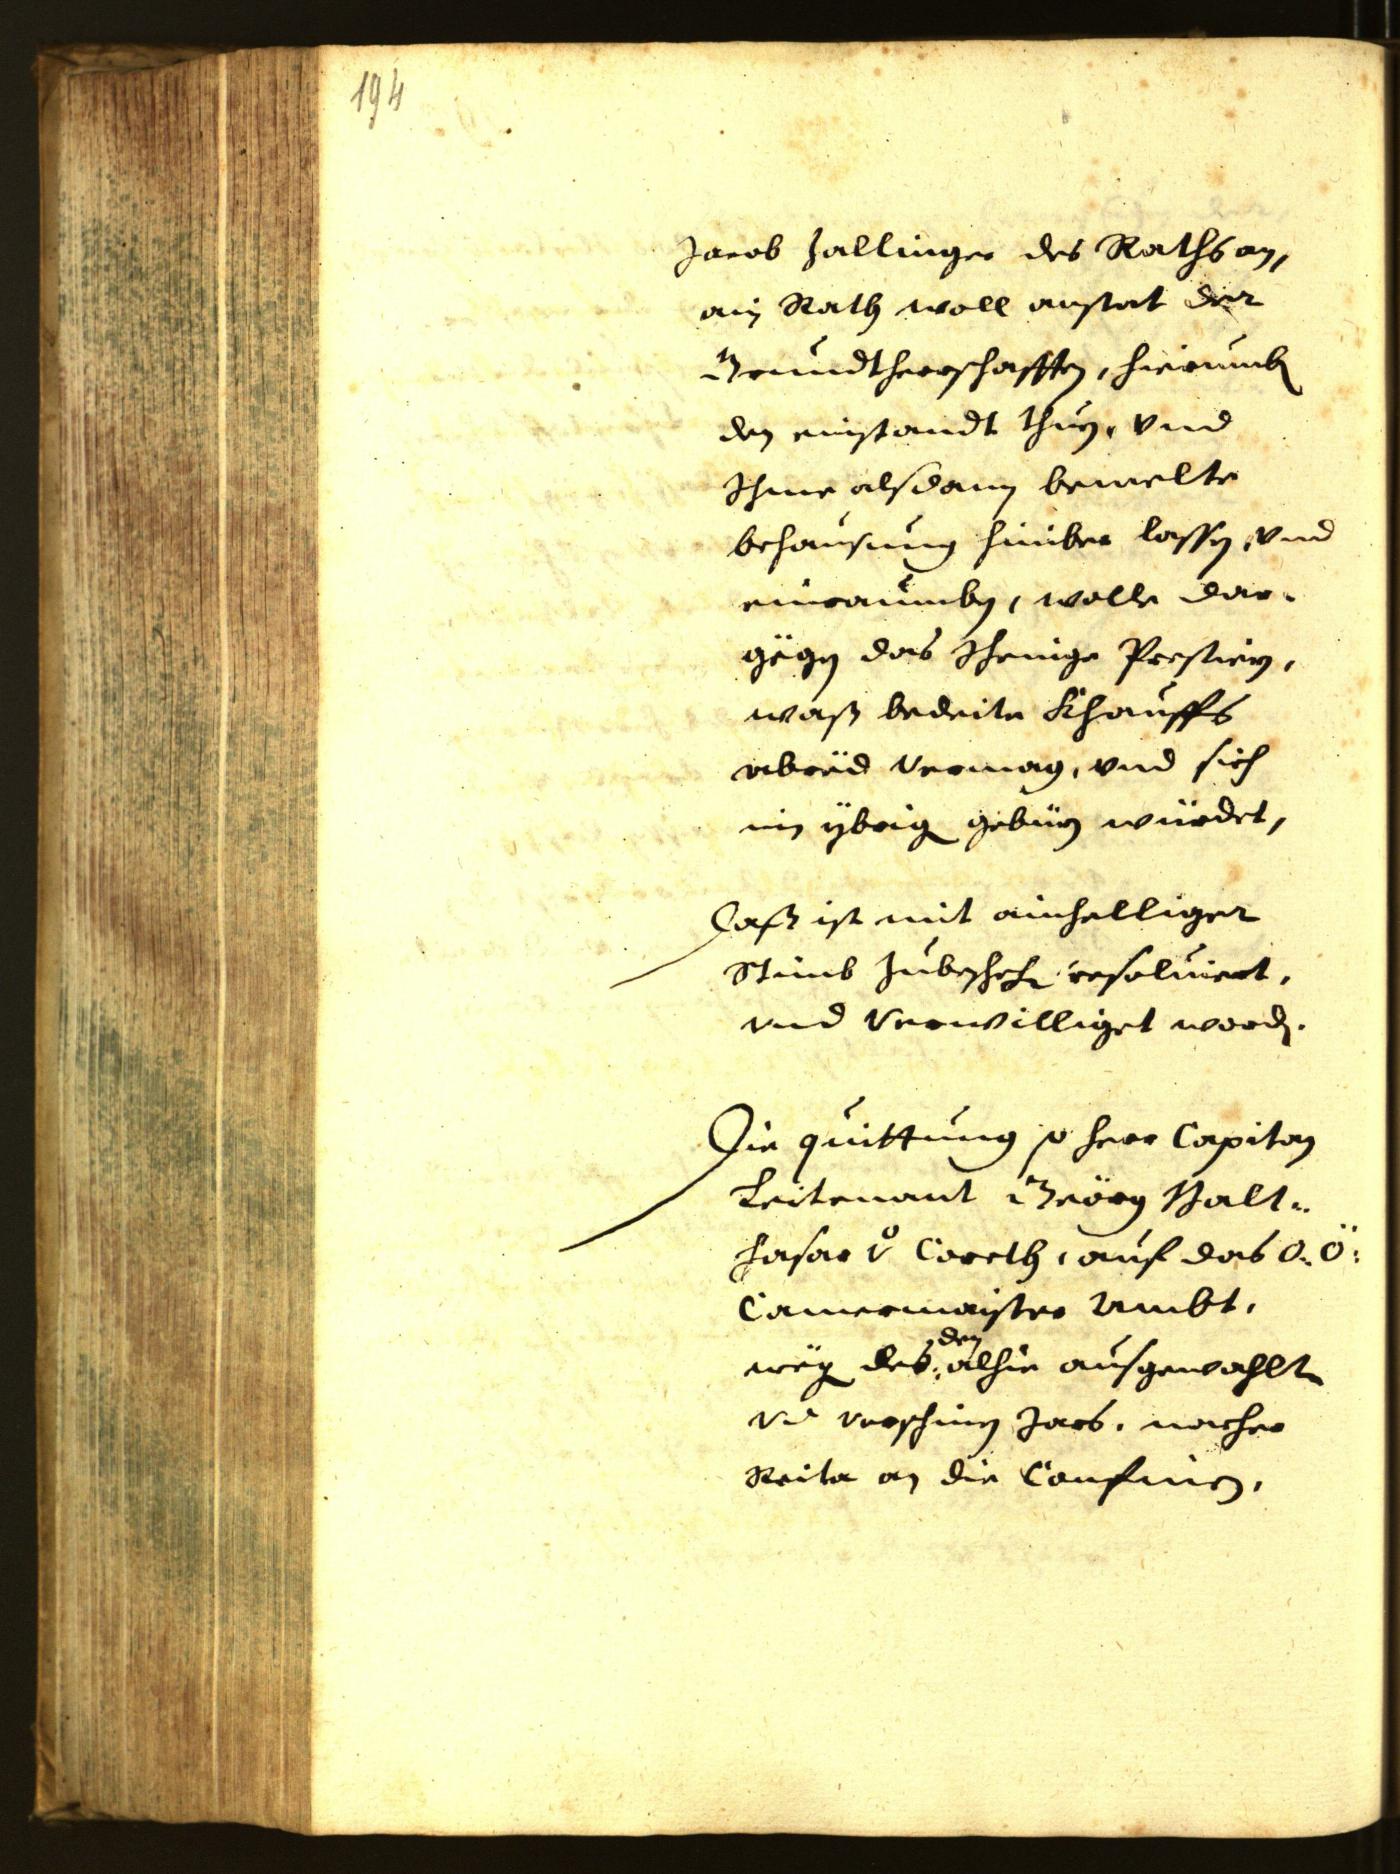 194
Jacob Zallinger des Raths an,
ain Rath woll anstat der
Grundtherrschafften, hierumb
den einstandt thuen, Vnd
Ihme alsdann bemelte
behausung hiniber lassen, vnd
einraumben, wolle dar-
gëgen das Ihenige Prestiern,
waß bedeite Khauffs
abrëd vermag, vnd sich
im ÿbrigen gebürn würdet,
Daß ist mit ainhelliger
Stimb zubeschehen resoluiert,
vnd Verwilliget worden.
Die quittung so herr Capitan
Leitenant Geörg Balt-
hasar v Coreth, auf das O: Ö:
Camermaister Ambt,
wëgen des: den alhie ausgewahlten
vnd verschinen Jars, nacher
Reita an die Confinen,